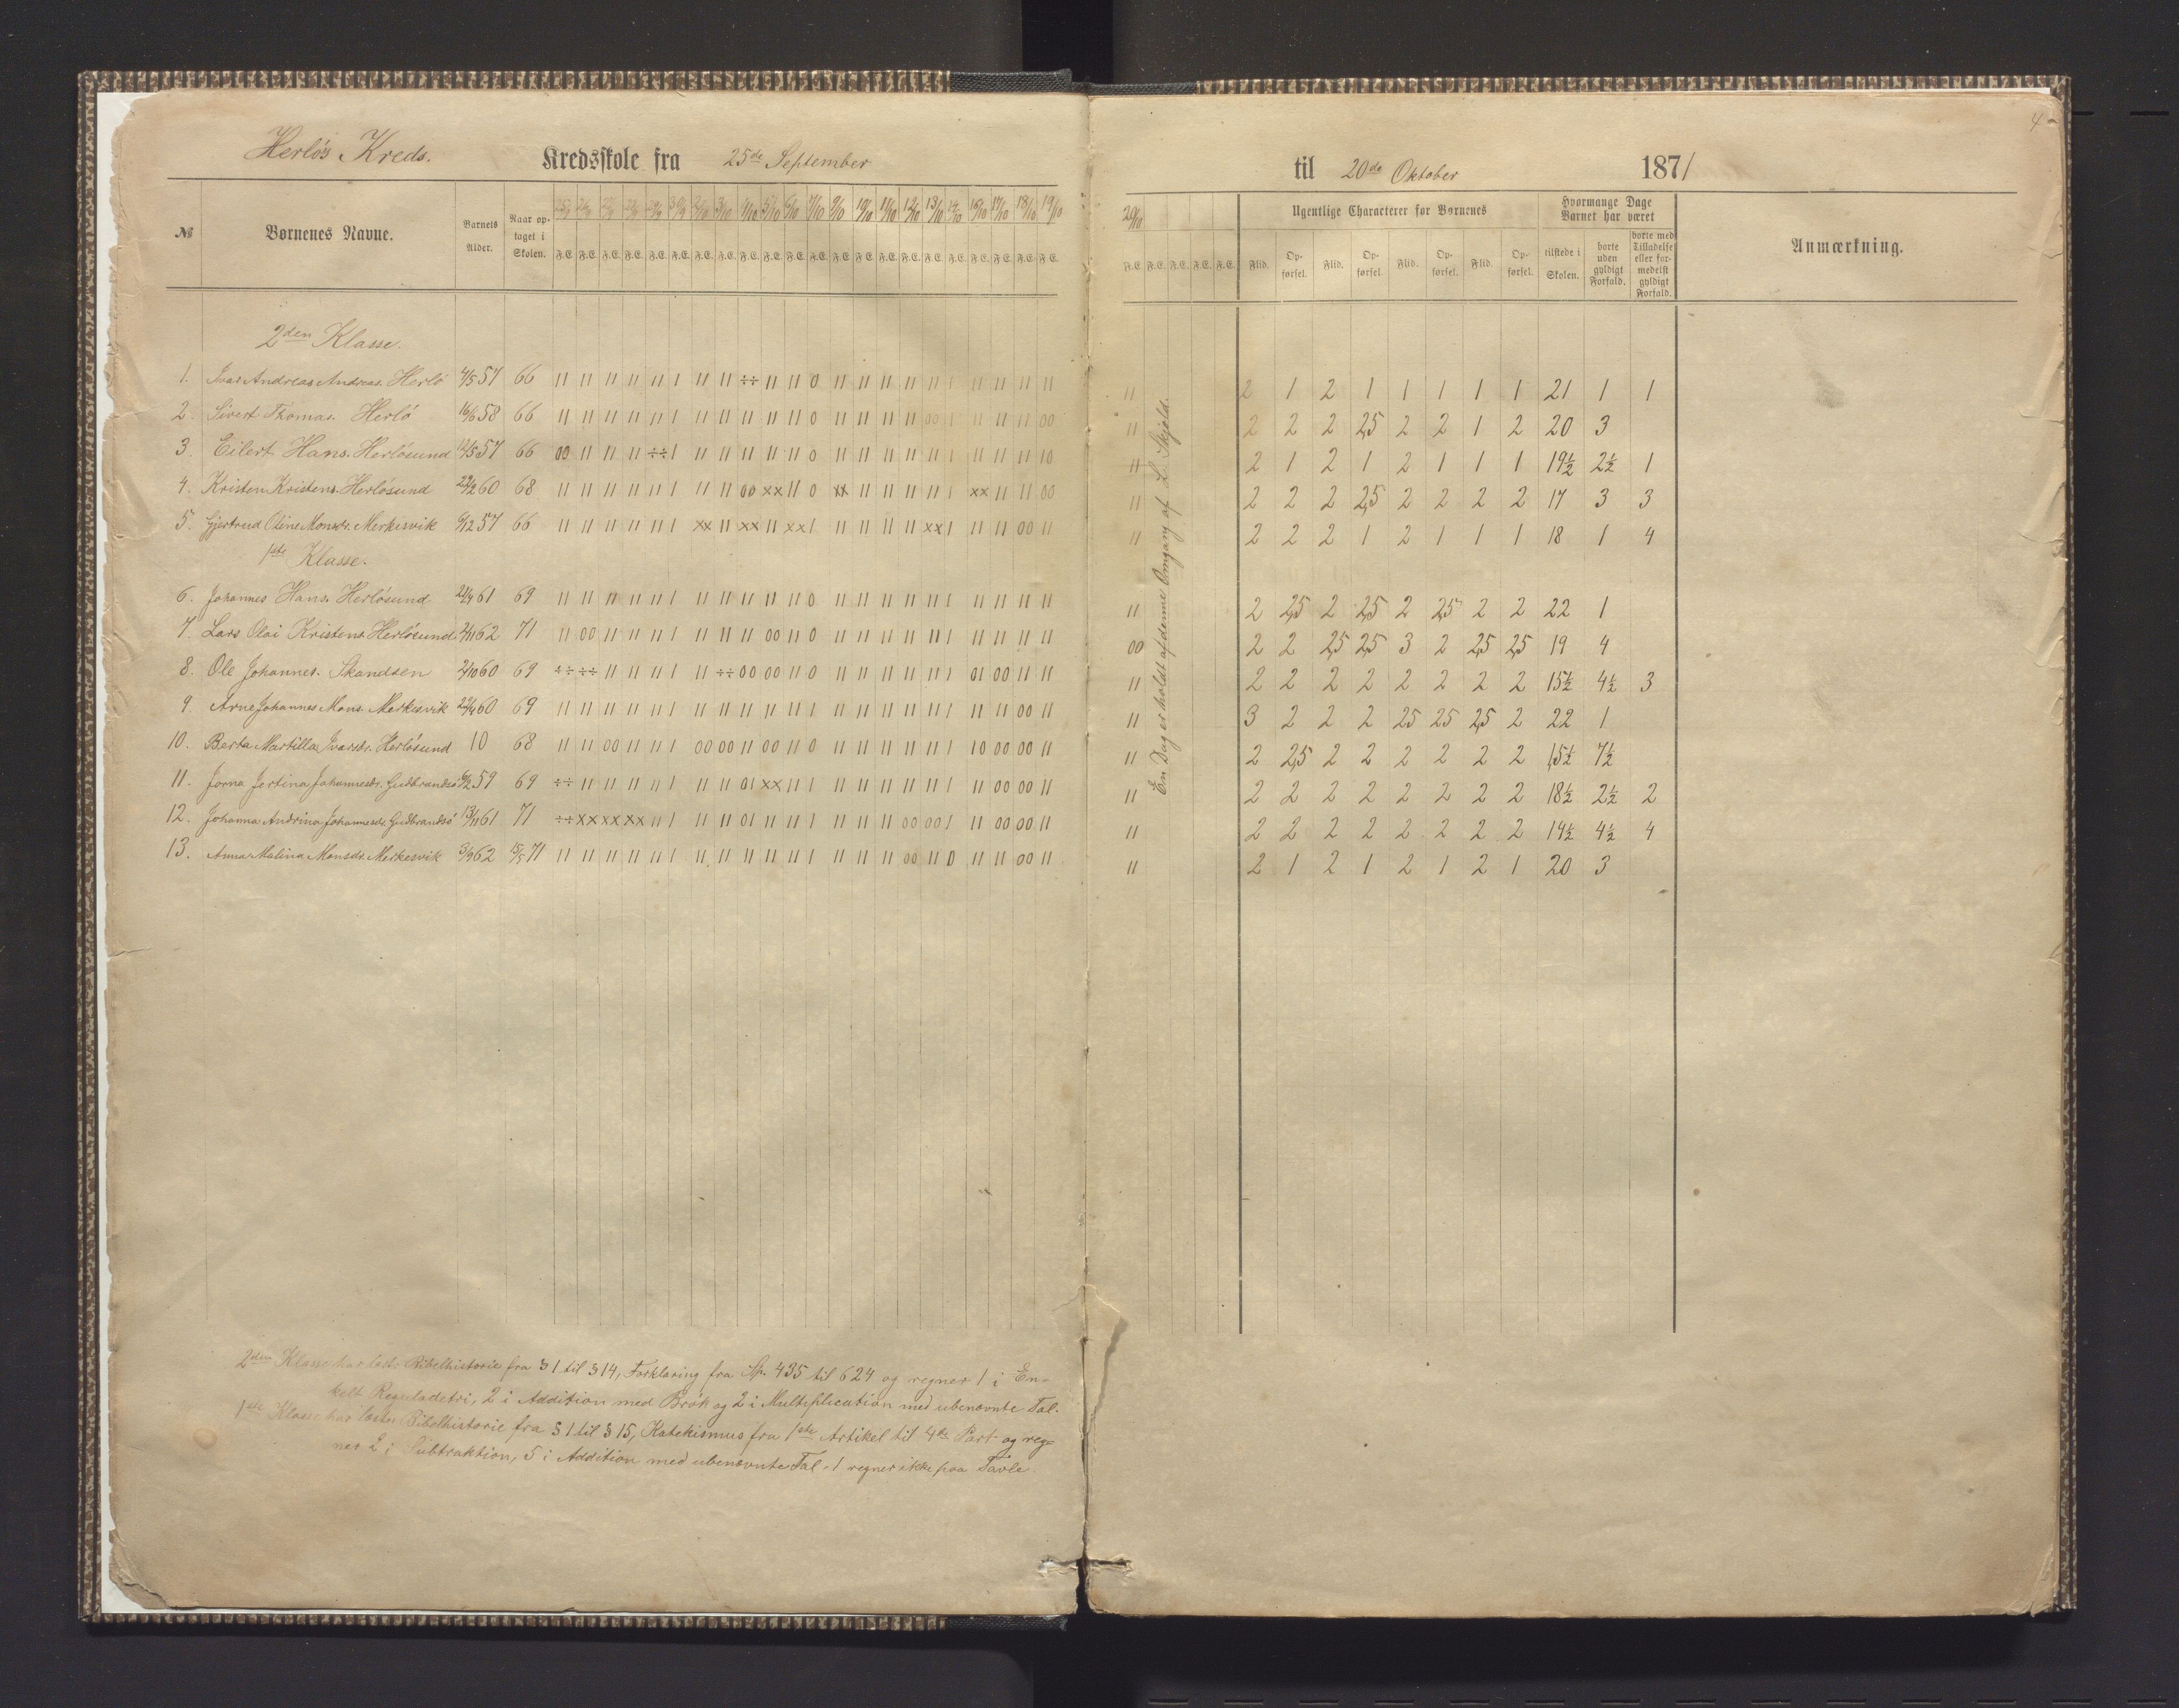 4
Herlös Kreds. Kredsskole fra 25de September til 20de Oktober 1871
№ Børnenes Navne. Barnets Alder. Naar optaget i Skolen. 25/9 26/9 27/9 28/9 29/9 30/9 2/10 3/10 4/10 5/10 6/10 7/10 9/10 10/10 11/10 12/10 13/10 14/10 16/10 17/10 18/10 19/10 20/10
F.E. F.E. F.E. F.E. F.E. F.E. F.E. F.E. F.E. F.E. F.E. F.E. F.E. F.E. F.E. F.E. F.E. F.E. F.E. F.E. F.E. F.E. F.E. F.E. F.E. F.E. F.E.
Ugentlige Characterer for Børnenes
Flid. Opførsel. Flid. Opførsel. Flid. Opførsel. Flid. Opførsel.
Hvormange Dage Barnet har været
tilstede i Skolen. borte uden gyldigt Forfald. borte med Tilladelse eller formedelst gyldigt Forfald.
Anmærkning.
2den Klasse.
1. Ivar Andreas Andreas. Herlö 4/5 57 66 11 11 11 11 11 1 11 11 ÷÷ 11 11 0 11 11 11 11 11 1 11 11 11 11 11 2 1 2 1 1 1 1 1 21 1 1
2. Sivert Thomas. Herlö 16/6 58 66 11 11 11 11 11 1 11 11 11 11 11 0 11 11 11 11 00 1 11 11 11 00 11 2 2 2 2,5 2 2 1 2 20 3
3. Eilert Hans. Herlösund 12/5 57 66 00 11 11 11 ÷÷ 1 11 11 11 11 11 0 11 11 11 11 11 1 11 11 11 10 11 2 1 2 1 2 1 1 1 19½ 2½ 1
4. Kristen Kristens. Herlösund 22/2 60 68 11 11 11 11 11 1 11 11 00 xx 11 0 xx 11 11 11 11 1 xx 11 11 00 11 2 2 2 2,5 2 2 2 2 17 3 3
5. Gjertrud Oline Monsdr. Merkesvik 6/12 57 66 11 11 11 11 11 1 xx 11 xx 11 xx 1 11 11 11 11 xx 1 11 11 00 11 11 2 2 2 1 2 1 1 1 18 1 4
1ste Klasse.
6. Johannes Hans. Herlösund 21/4 61 69 11 11 11 11 11 1 11 11 11 11 11 0 11 11 11 11 11 1 11 11 11 11 11 2 2,5 2 2,5 2 2,5 2 2 22 1
7. Lars Olai Kristens. Herlösund 2/11 62 71 11 00 11 11 11 1 11 11 11 00 11 0 11 11 11 11 11 1 11 11 11 11 00 2 2 2,5 2,5 3 2 2,5 2,5 19 4
8. Ole Johannes. Skandsen 2/10 60 69 ÷÷ ÷÷ 11 11 11 1 11 ÷÷ 00 00 11 0 11 11 11 11 11 1 01 00 11 11 11 2 2 2 2 2 2 2 2 15½ 4½ 3
9. Arne Johannes Mons. Merkesvik 22/4 60 69 11 11 11 11 11 1 11 11 11 11 11 1 11 11 11 11 11 1 11 11 00 11 11 3 2 2 2 2,5 2,5 2,5 2 22 1
10. Berta Martilla Ivarsdr. Herlösund 10 68 11 11 00 11 11 1 00 00 11 00 11 0 11 11 11 11 11 1 10 00 00 11 11 2 2,5 2 2 2 2 2 2 15½ 7½
11. Jorna Jertina Johannesdr. Gudbrandsö 6/2 59 69 ÷÷ 11 11 11 11 1 11 11 01 xx 11 1 11 11 11 11 11 1 11 00 00 11 11 2 2 2 2 2 2 2 2 18½ 2½ 2
12. Johanna Andrina Johannesdr. Gudbrandsö 13/11 61 71 ÷÷ xx xx xx 11 1 11 11 01 11 11 1 11 11 11 00 00 1 11 00 00 11 11 2 2 2 2 2 2 2 2 14½ 4½ 4
13. Anna Malina Monsdr. Merkesvik 3/9 62 15/5 71 11 11 11 11 11 1 11 11 11 11 11 1 11 11 11 00 11 0 11 11 00 11 11 2 1 2 1 2 1 2 1 20 3
En Dag er holdt af denne Omgang af L. Skjold.
2den Klasse har læst Bibelhistorie fra § 1 til § 14, Forklaring fra Sp. 435 til 624 og regner 1 i En-
kelt Reguladetri, 2 i Addition med Brök og 2 i Multiplication med ubenævnte Tal.
1ste Klasse har læst Bibelhistorie fra § 1 til § 15, Katekismus fra 1ste Artikel til 4de Part og reg-
ner 2 i Subtraktion, 5 i Addition med ubenævnte Tal. 1 regner ikke paa Tavle.